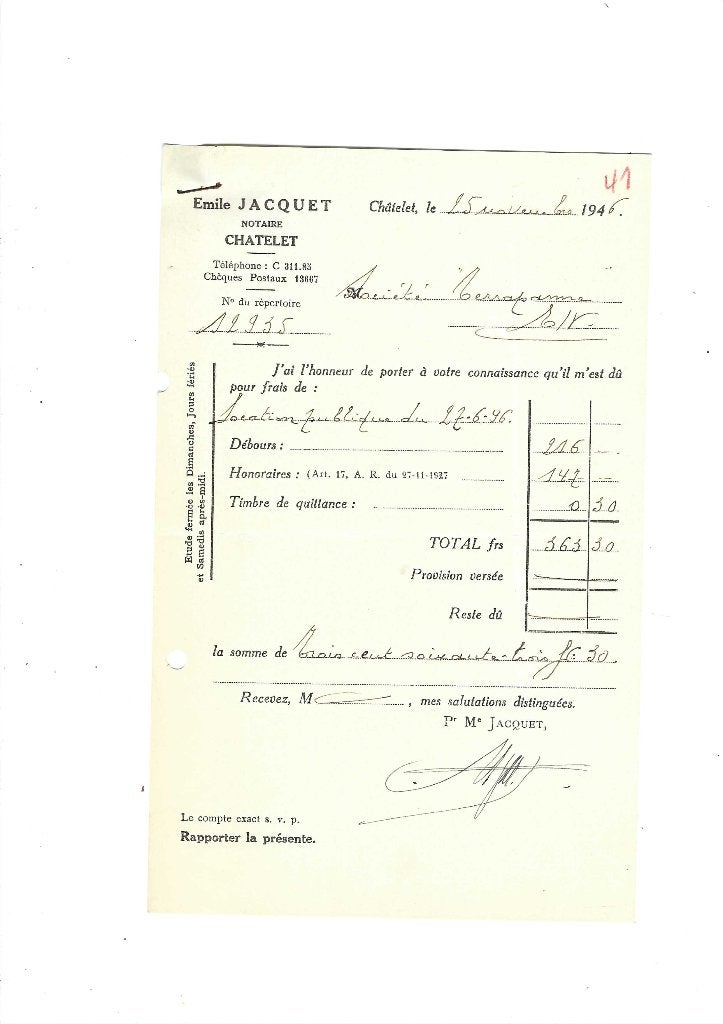 41
Emile JACQUET
NOTAIRE
CHATELET
Téléphone : C 311.83
Chèques Postaux 13667
N° du répertoire
12935
Châtelet, le 25 novembre 1946.
Société
E/V.
Etude fermée les Dimanches, Jours fériés
et Samedis après-midi.
J'ai l'honneur de porter à votre connaissance qu'il m'est dû
pour frais de :
Location publique du 27-6-46.
Débours : 216 —
Honoraires : (Art. 17, A. R. du 27-11-1927 147 —
Timbre de quittance : 0 30
TOTAL frs 363 30
Provision versée
Reste dû
la somme de Trois cent soixante-trois fr. 30.
Recevez, M , mes salutations distinguées.
Pr Me JACQUET,
Le compte exact s. v. p.
Rapporter la présente.